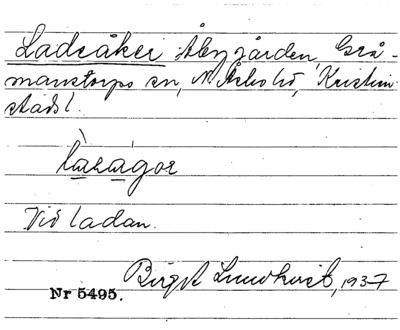 Ladeåker Åbygården, Grå-
manstorps sn, N. Åsbo hd, Kristian-
stads l.
làraágor
Vid ladan.
Birgit Lundkvist, 1937
Nr 5495.